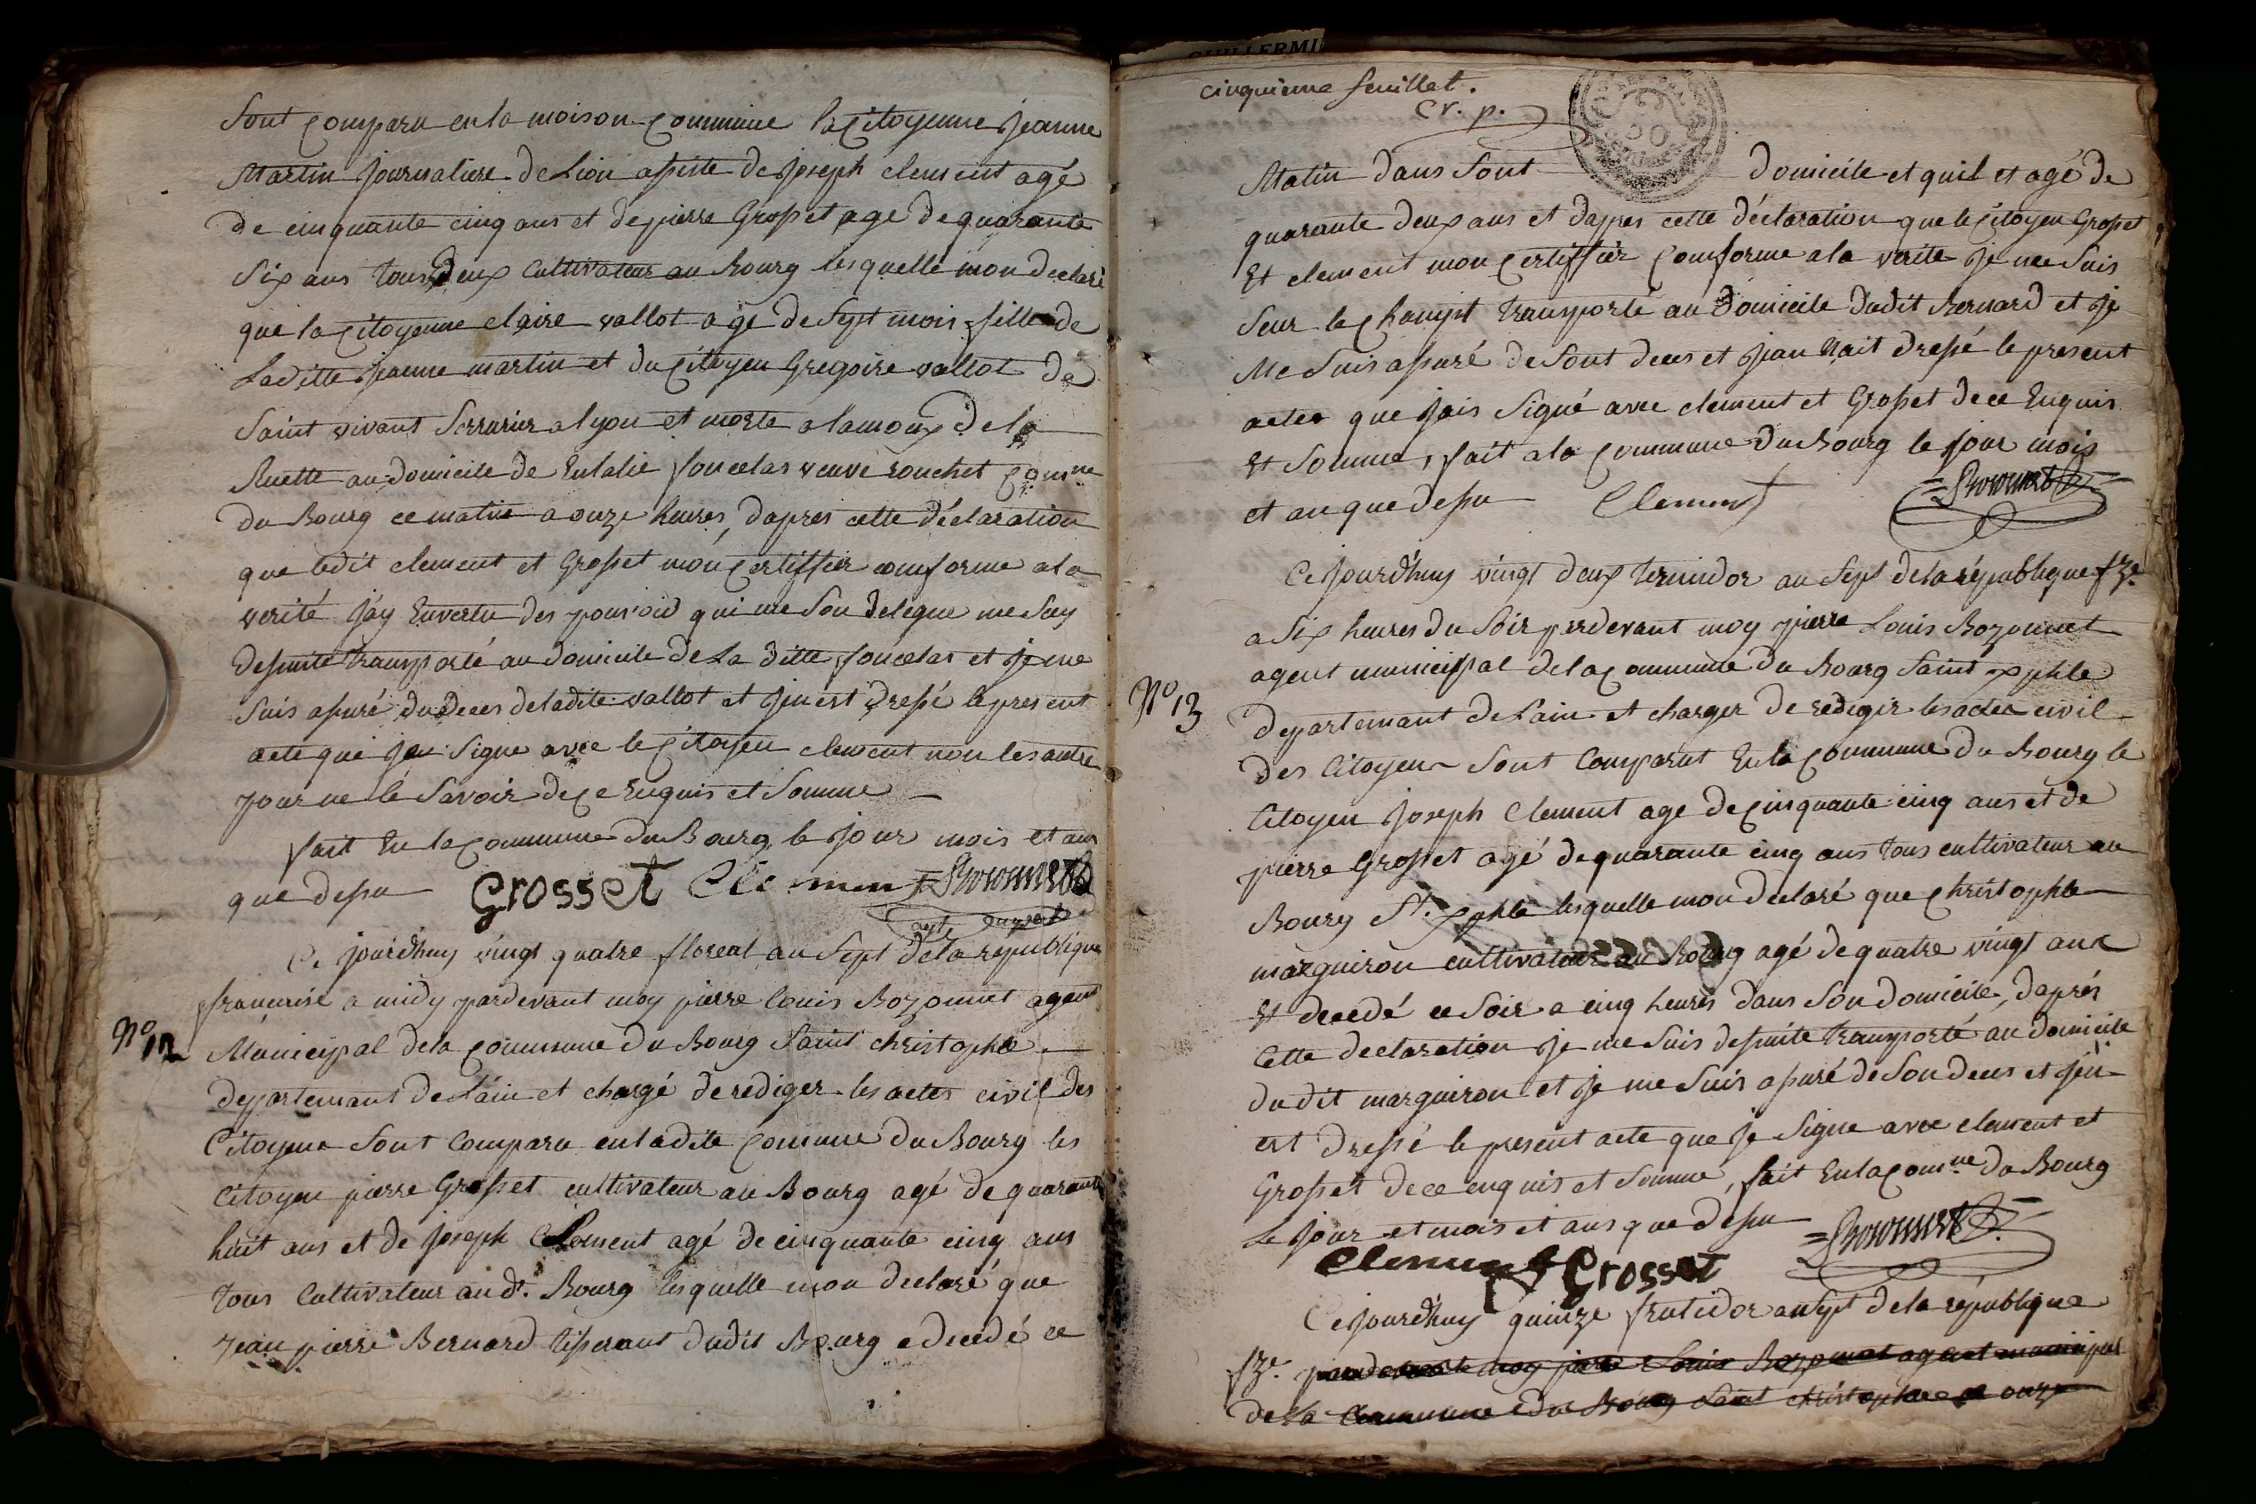 Sont comparu en la moison commune la Citoyenne jeanne
Martin journaliere de Lion assiste de joseph clement agé
de cinquante cinq ans et de pierre Grosset age de quarante
Six ans tous deux Cultivateur au Bourg lesquelle mon declaré
que la Citoyenne claire vallot age de Sept mois fille de
Laditte jeanne martin et du Citoyen Gregoire vallot de
Saint vivant Serrurier a lyon et morte a lamoux de la
Ruette au domicile de Eulalie foucelas veuve rouchet comne
du Bourg ce matin a onze heures, dapres cette déclaration
que ledit clement et Grosset mon certiffier conforme a la
verité j'ay Envertu des pouvoir qui me Son delegue me Suy
desuuite transporté au domicile de La ditte foucelas et je me
Suis assuré du deces de ladite vallot et jen est dressé le present
acte que jeu Signe avec le Citoyen clement non les autre
pour ne le Savoir de ce Enquis et Somme
fait En la commune du Bourg le jour mois et an
que dessu Grosset Clement Bozonnet
agt municipal
Ce jourd'huy vingt quatre floreal an Sept de la republique
francaise a midy pardevant moy pierre Louis Bozonnet agent
No 12
Municipal de la commune du Bourg Saint christophe
departemant de L'ain et chargé de rediger les actes civil des
Citoyens Sont comparu en ladite commune du Bourg les
Citoyen pierre Grosset cultivateur au Bourg agé de quarante
huit ans et de joseph Clement agé de cinquante cinq ans
tous Cultivateur aud. Bourg lesquelle mon declaré que
jean pierre Bernard tisserant dudit Bourg e decedé ce
GUILLERMI
cinquieme feuillet.
cr. p.
Matin dans Sont domicile et quil et agé de
quarante deux ans et dapres cette déclaration que le Citoyen Grosset
Et clement mon certiffier conforme a la verite je me Suis
Seur le champt transporté au Domicile dudit Bernard et je
Me Suis assuré de Sont deces et jean nait dressé le present
acte que jais Signé avec clement et Grosset de ce Enquis
Et Somme, fait a la commune du Bourg le jour mois
et an que dessu Clement Bozonnet
Ce jourd'huy vingt deux termidor an Sept de la république fze
a Six heures du Soir perdevant moy pierre Louis Bozonnet
agent municipal de la commune du Bourg Saint xphle
No 13
departemant de Lain et charger de rediger les actes civil
des Citoyen Sont Comparut En la commune du Bourg le
Citoyen joseph Clement age de cinquante cinq ans et de
pierre Grosset agé de quarante cinq ans tous cultivateur au
Bourg St. xphle lesquelle mon declaré que christophle
marguiron cultivateur au Bourg agé de quatre vingt ans
Et decedé ce Soir a cinq heures dans Son domicile, daprés
Cette declaration je me Suis desuuite transporté au domicile
dudit marguiron et je me Suis assuré de Son deces et jen
est dressé le present acte que je Signe avec clement et
Grosset de ce enquis et Somme, fait En la comne du Bourg
Le jour et mois et ans que dessu Bozonnet
Clement Grosset
Ce jourd'huy quinze frutidor an Sept de la république
fze. pardevant moy pierre Louis Bozonnet agent municipal
de la commune du Bourg Saint christophe a onze